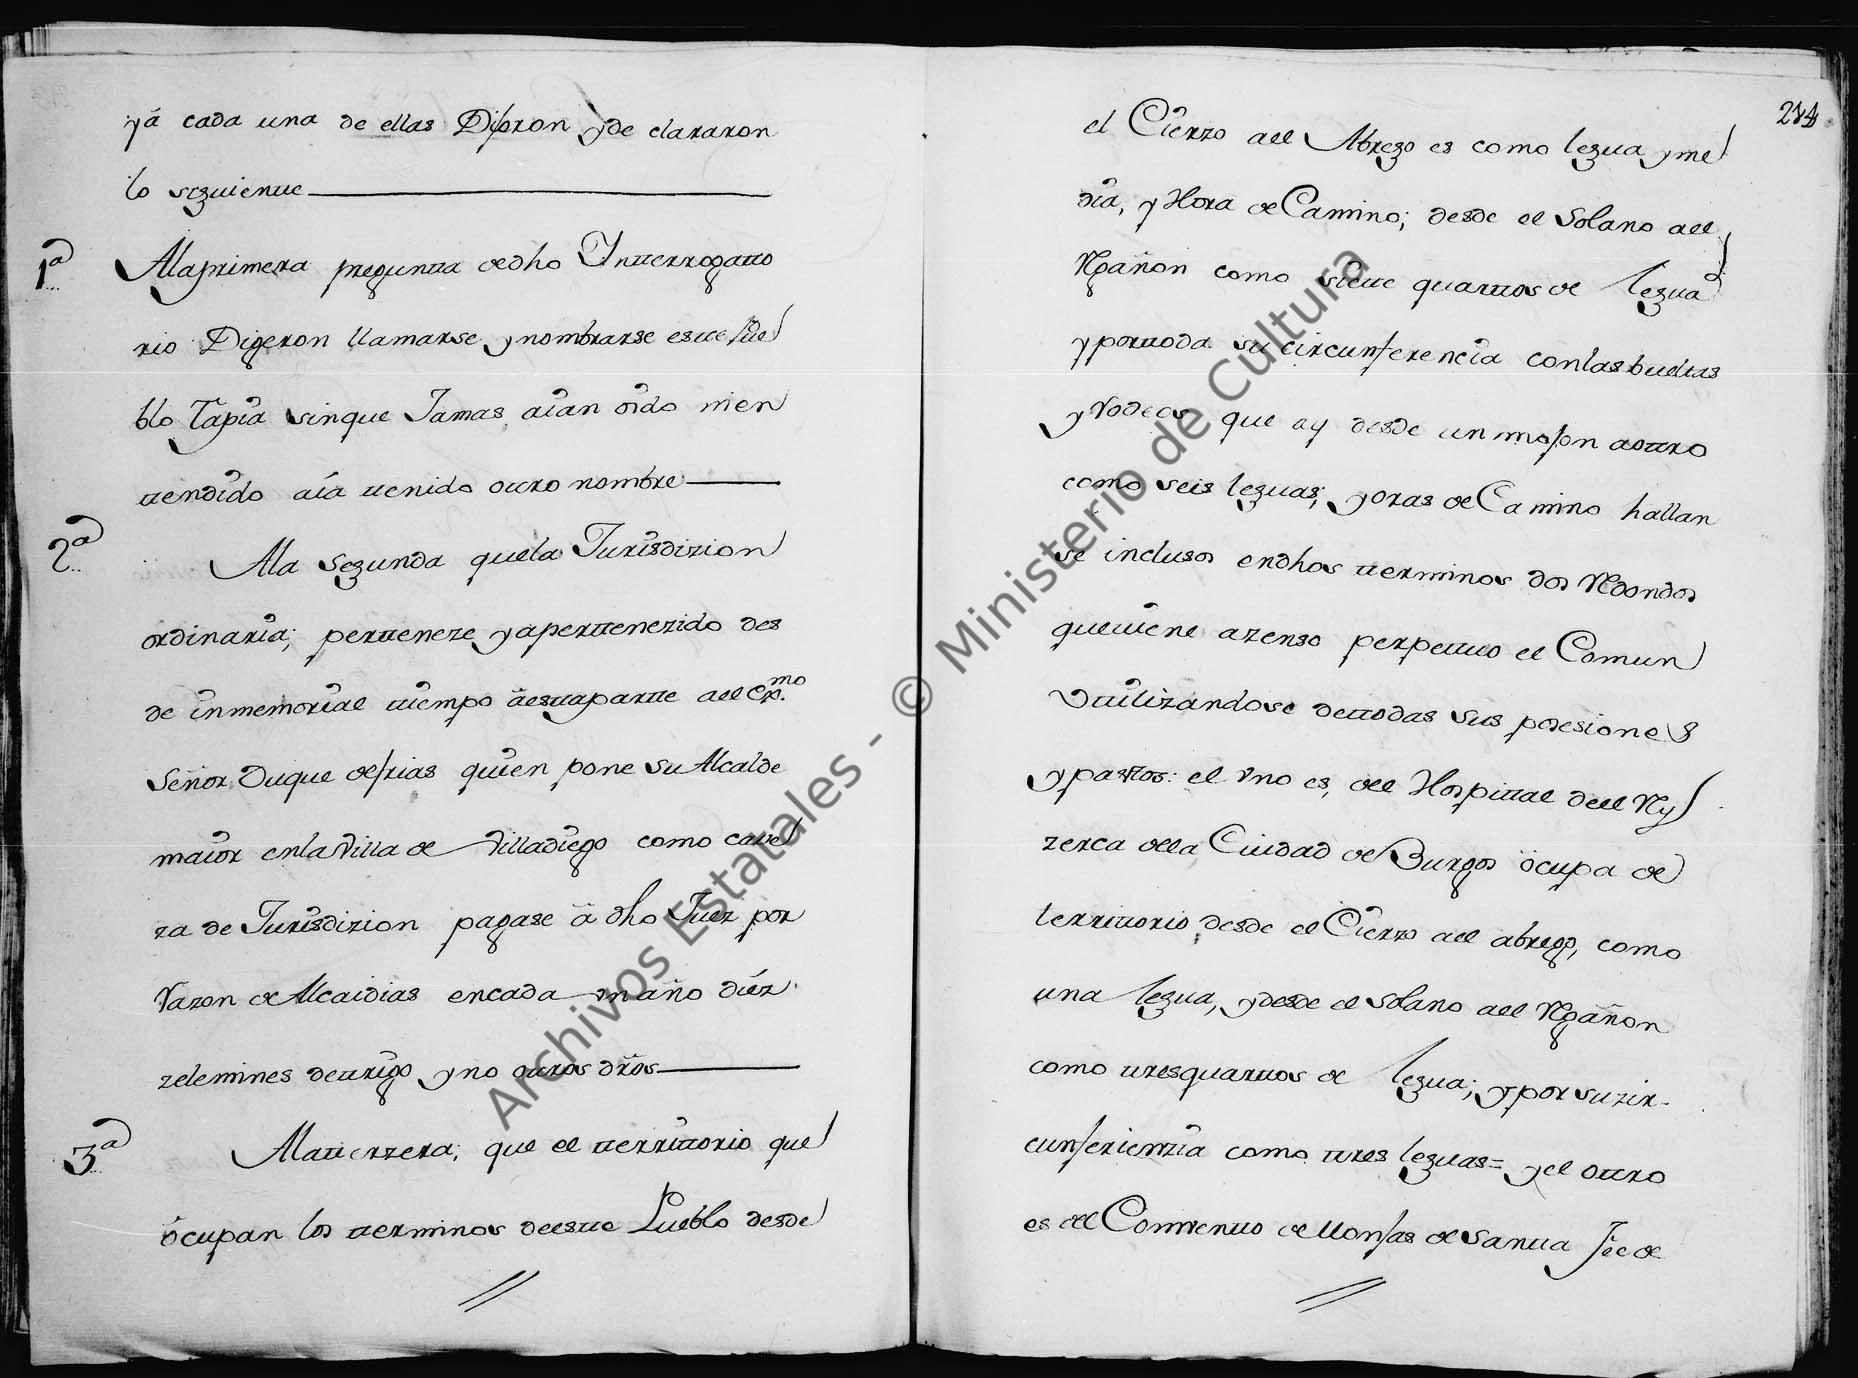 yá cada una de ellas Dijeron yde clararon
lo siguiente
1ª
Ala primera pregunta de dho Ynterrogatto
rio Digeron llamarse y nombrarse este Pue
blo Tapia sinque Jamas aian oido men
tendido aía tenido otro nombre
2ª
Ala segunda quela Jurisdizion
ordinaria; perteneze y apertenezido des
de inmemorial tiempo áestaparte all Exmo.
Señor Duque de frias quien pone su Alcalde
maior enla Villa de Villadiego como cave
za de Jurisdizion pagase á dho Juez por
Razon de Alcaidias encada un año diéz
zelemines de trigo y no otros dros
3ª
Ala terzera; que el territtorio que
ócupan los terminos deeste Pueblo desde
284
el Cierzo all Abrego es como legua y me
dia, y Hora de Camino; desde el Solano all
Rgañon como siete quarttos de legua
y porttoda su circunferencia con las bueltas
y Rodeos que ay desde un mojon aottro
como seis leguas; y oras de Camino hallan
se inclusos endhos terminos dos Rdondos
quetiene azenso perpettuo el Comun
Vtilizandose dettodas sus posesiones
y pastos: el Vno es, dell Hospittal dell Ry
zerca della Ciudad de Burgos ócupa de
territtorio desde el Cierzo all abrego, como
una legua, y desde el Solano all Rgañon
como tresquarttos de legua; y por su zir-
cunferienzia como tres leguas= y el ottro
es dell Comventto de Monjas de Santta fee de
Archivos Estatales - © Ministerio de Cultura